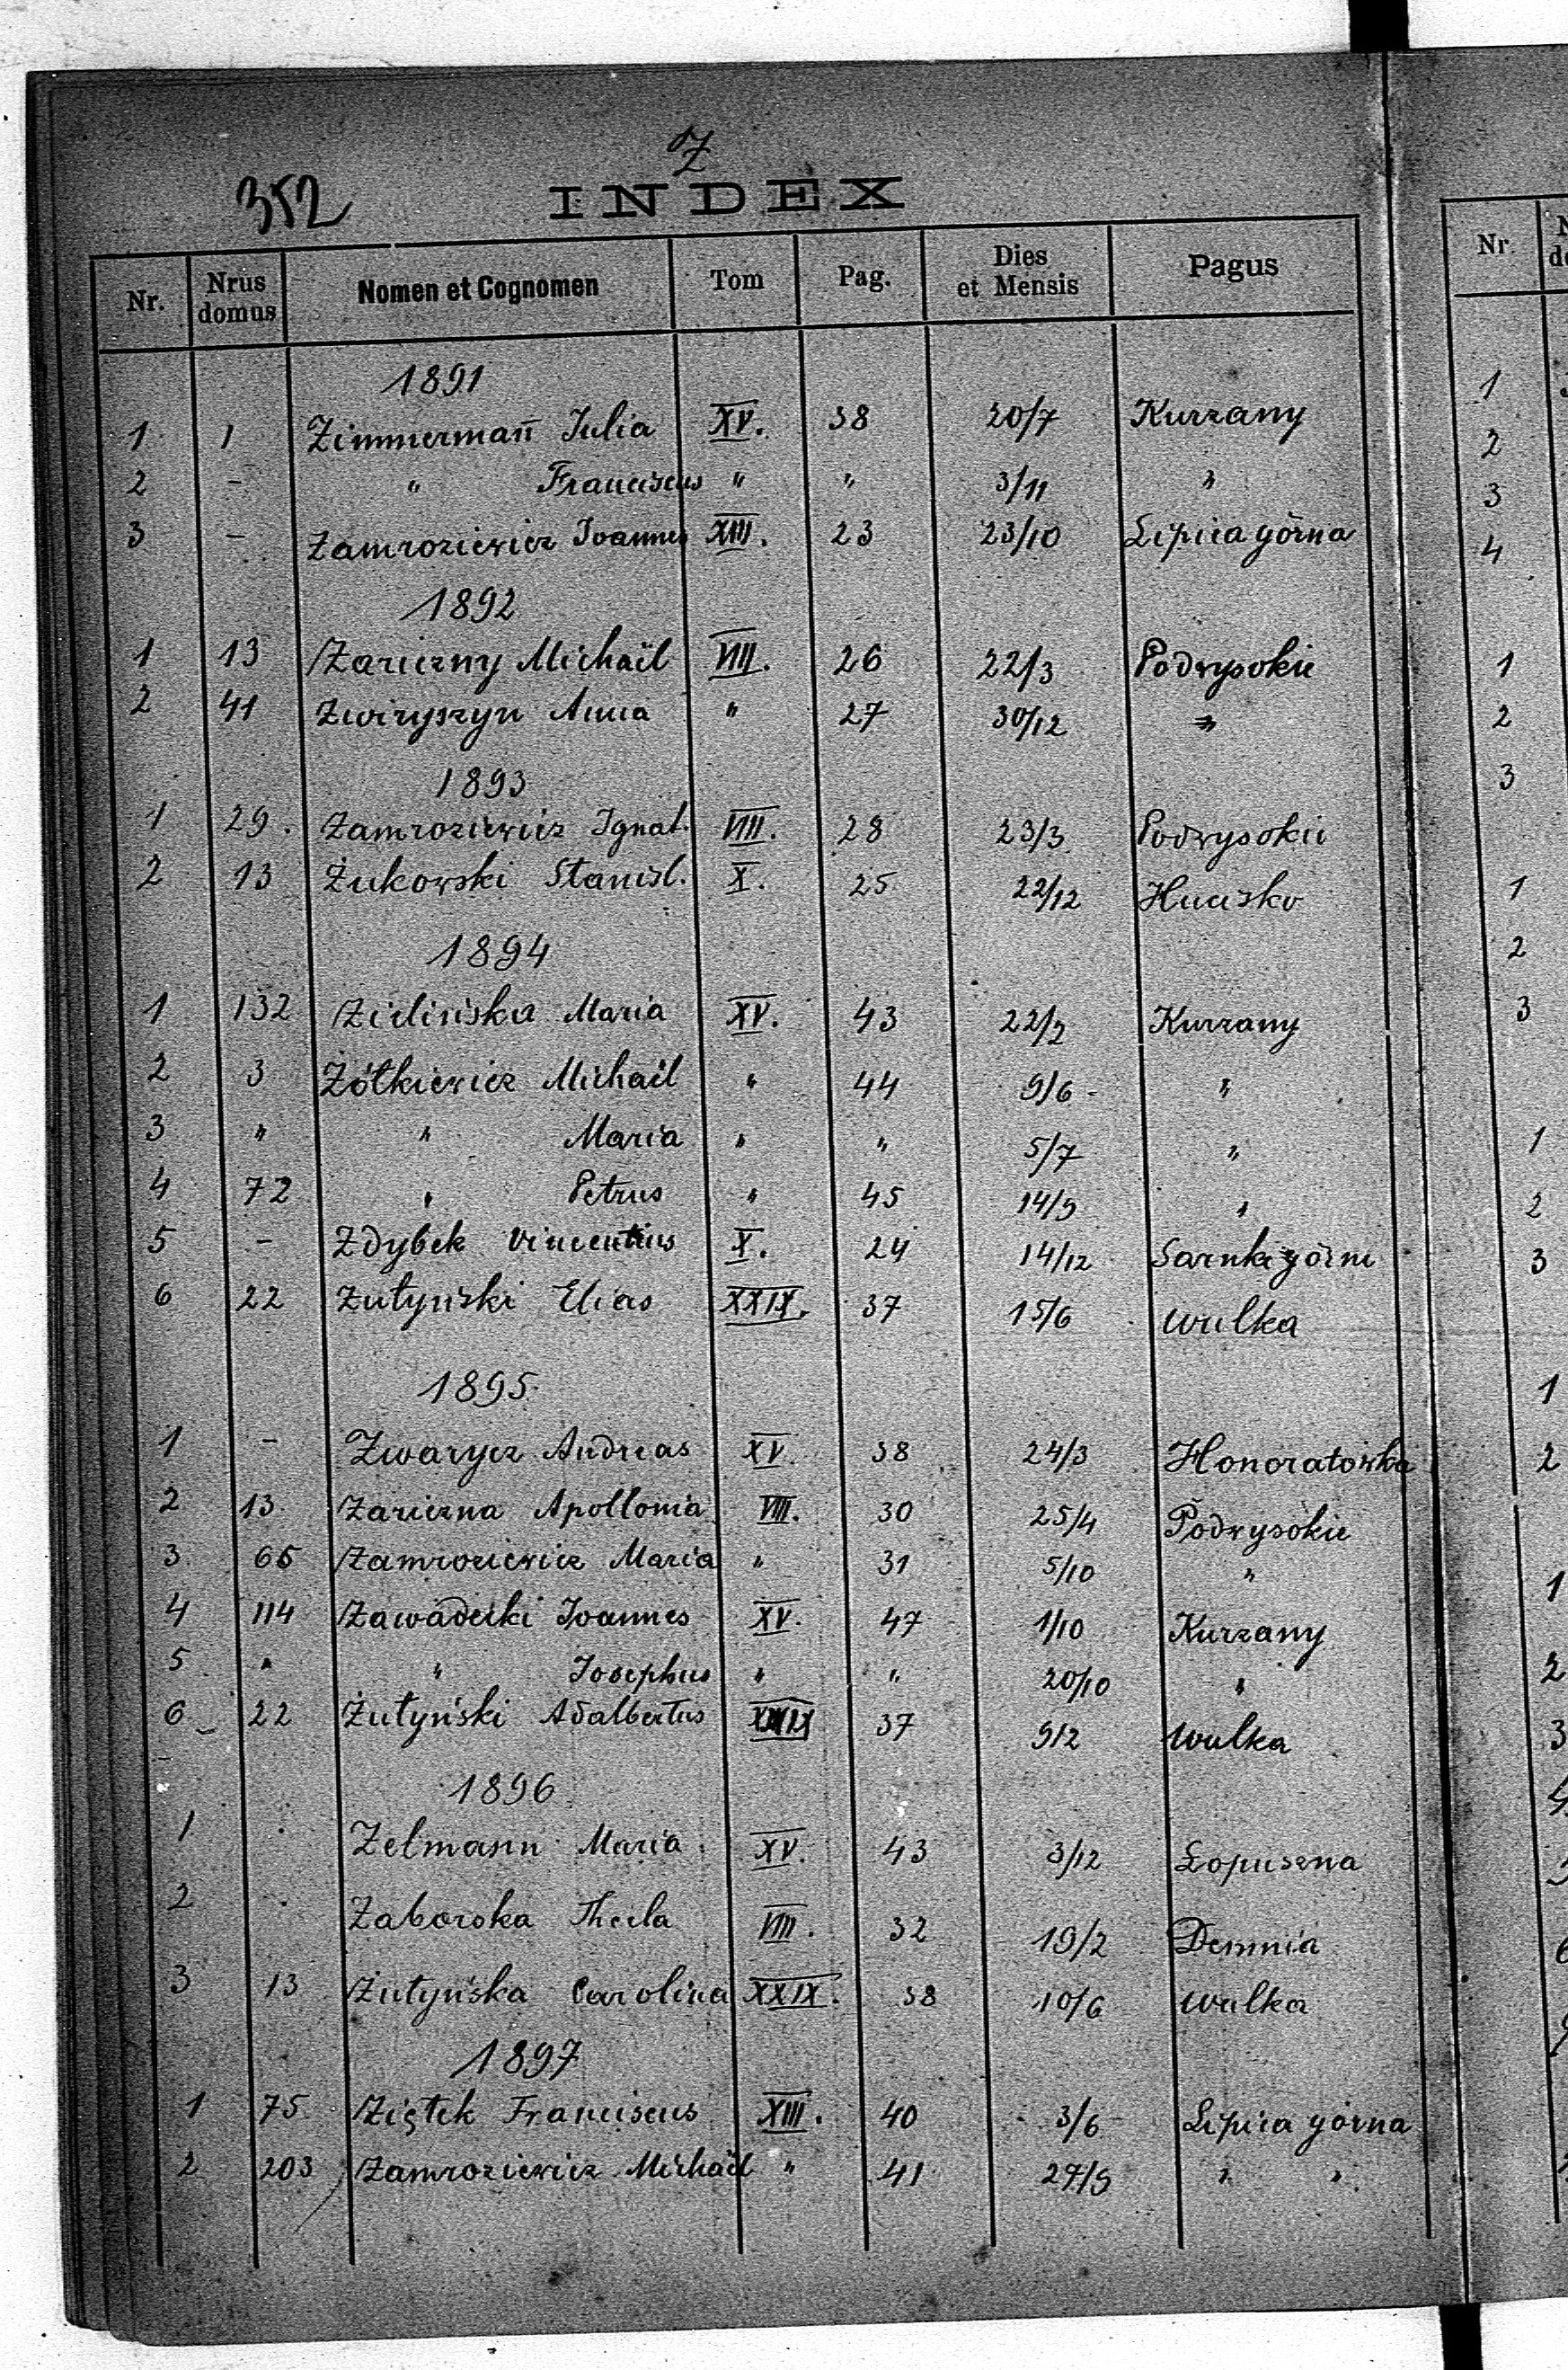 Z
352
INDEX
Nr. Nrus domus Nomen et Cognomen Tom Pag. Dies et Mensis Pagus
1891
1 1 Zimmermañ Julia XV. 38 20/7 Kurzany
2 - " Franciscus " " 3/11 "
3 - Zamroziewicz Joannes XIII. 23 23/10 Lipica górna
1892
1 13 Zariczny Michaël VIII. 26 22/3 Podwysokie
2 41 Zwiryszyn Anna " 27 30/12 "
1893
1 29. Zamroziewicz Ignat. VIII. 28 23/3 Podwysokie
2 13 Żukowski Stanisl. X. 25 22/12
1894
1 132 Zielińska Maria XV. 43 22/2 Kurzany
2 3 Żółkiewicz Michaël " 44 9/6 "
3 " " Maria " " 5/7 "
4 72 " Petrus " 45 14/9 "
5 - Zdybek Vincentius X. 24 14/12 Sarnki górne
6 22 Żutyński Elias XXIX. 37 15/6 Wulka
1895
1 - Zwarycz Andreas XV. 38 24/3 Honoratówka
2 13 Zariczna Apollonia VIII. 30 25/4 Podwysokie
3 65 Zamroziewicz Maria " 31 5/10 "
4 114 Zawadecki Joannes XV. 47 1/10 Kurzany
5 " " Josephus " " 20/10 "
6 22 Żutyński Adalbertus XXIX 37 9/2 Wulka
1896
1 Zelmann Maria XV. 43 3/12 Łopuszna
2 Zaborska Thecla VIII. 32 19/2 Demnia
3 13 Żutyńska Carolina XXIX. 38 10/6 Wulka
1897
1 75 Ziętek Franciscus XIII. 40 3/6 Lipica górna
2 203 Zamroziewicz Michaël " 41 27/9 " "
Nr.
1
2
3
4
1
2
3
1
2
3
1
2
3
1
2
1
2
3